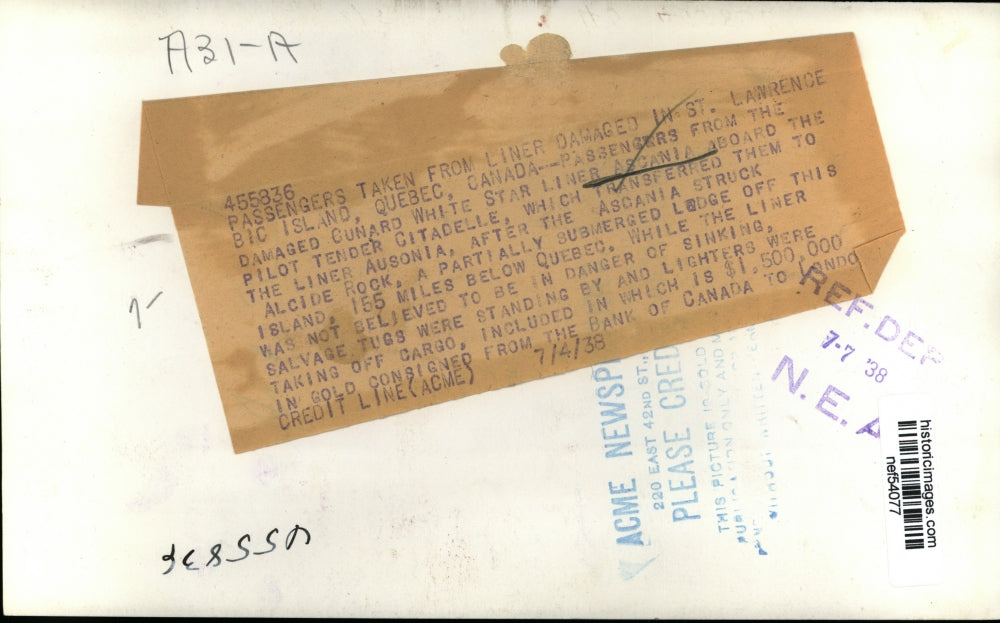 A31-A
455836
PASSENGERS TAKEN FROM LINER DAMAGED IN ST. LAWRENCE
BIC ISLAND, QUEBEC, CANADA--PASSENGERS FROM THE
DAMAGED CUNARD WHITE STAR LINER ASCANIA ABOARD THE
PILOT TENDER CITADELLE, WHICH TRANSFERRED THEM TO
THE LINER AUSONIA, AFTER THE ASCANIA STRUCK
ALCIDE ROCK, A PARTIALLY SUBMERGED LEDGE OFF THIS
ISLAND, 155 MILES BELOW QUEBEC. WHILE THE LINER
WAS NOT BELIEVED TO BE IN DANGER OF SINKING,
SALVAGE TUGS WERE STANDING BY AND LIGHTERS WERE
TAKING OFF CARGO, INCLUDED IN WHICH IS $1,500,000
IN GOLD CONSIGNED FROM THE BANK OF CANADA TO LONDO
CREDIT LINE(ACME) 7/4/38
REF. DEP
7-7 '38
N.E.A
ACME NEWSP
220 EAST 42ND ST.,
PLEASE CRED
THIS PICTURE IS SOLD
ONLY AND
historicimages.com
nef54077
455836